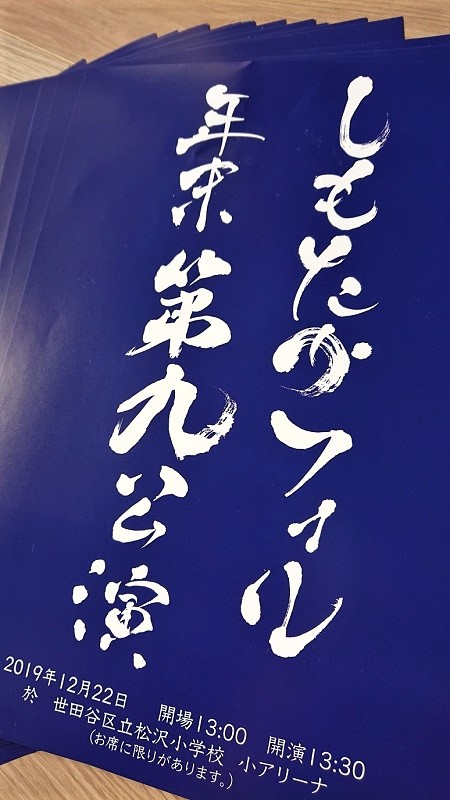 しもたかフィル
年末第九公演
2019年12月22日 開場13:00 開演13:30
於 世田谷区立松沢小学校 小アリーナ
(お席に限りがあります。)